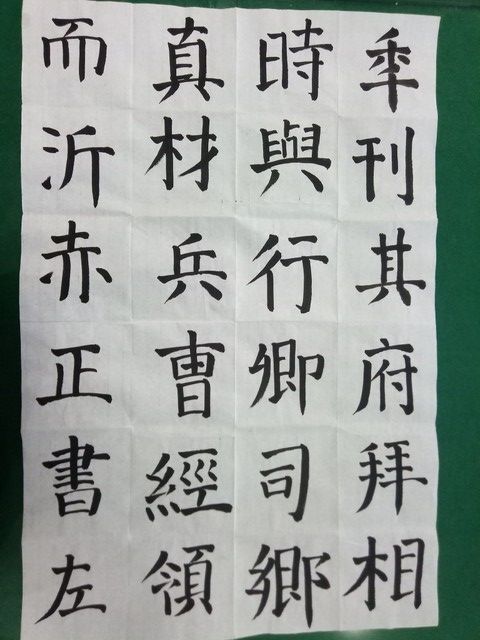 秊刊其府拜相
時與行卿司鄉
真材兵曺經領
而沂赤正書左